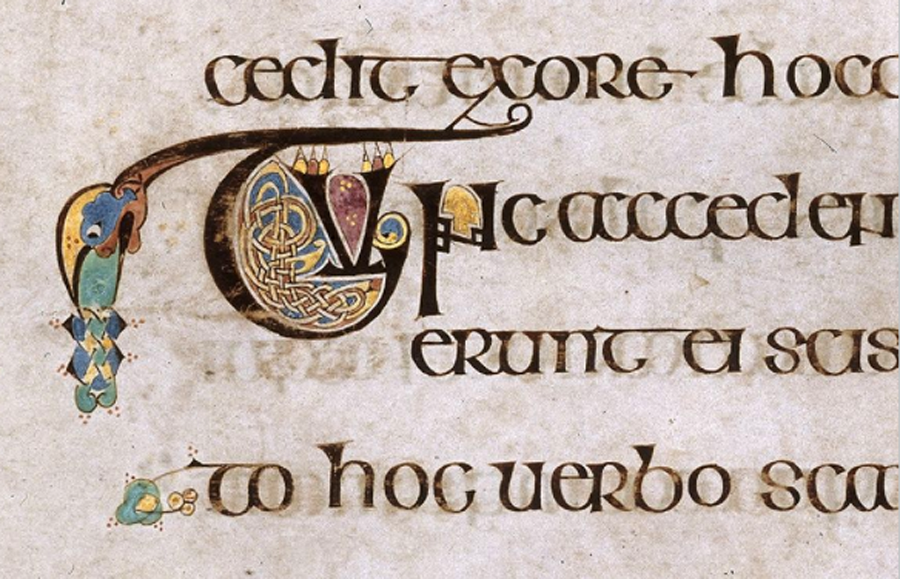 cedit ex ore hoc
Tunc acceden
erunt ei scis
to hoc uerbo sca